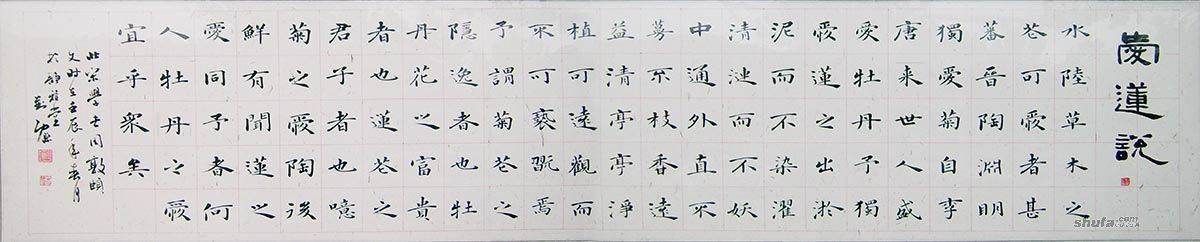 愛蓮說
水陸草木之
花可愛者甚
蕃晉陶淵明
獨愛菊自李
唐来世人盛
愛牡丹予獨
愛蓮之出淤
泥而不染濯
清漣而不妖
中通外直不
蔓不枝香遠
益清亭亭淨
植可遠觀而
不可褻翫焉
予謂菊花之
隱逸者也牡
丹花之富貴
者也蓮花之
君子者也噫
菊之愛陶後
鮮有聞蓮之
愛同予者何
人牡丹之愛
宜乎眾矣
此宋學士周敦頤
文時壬辰年春月
shufa.com